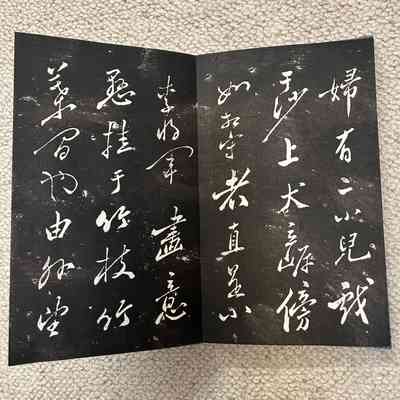 婦有二小兒戲
于沙上犬立岸傍
如相守者直是小
李將軍畫意
懸挂于竹枝竹
葉間也由外望